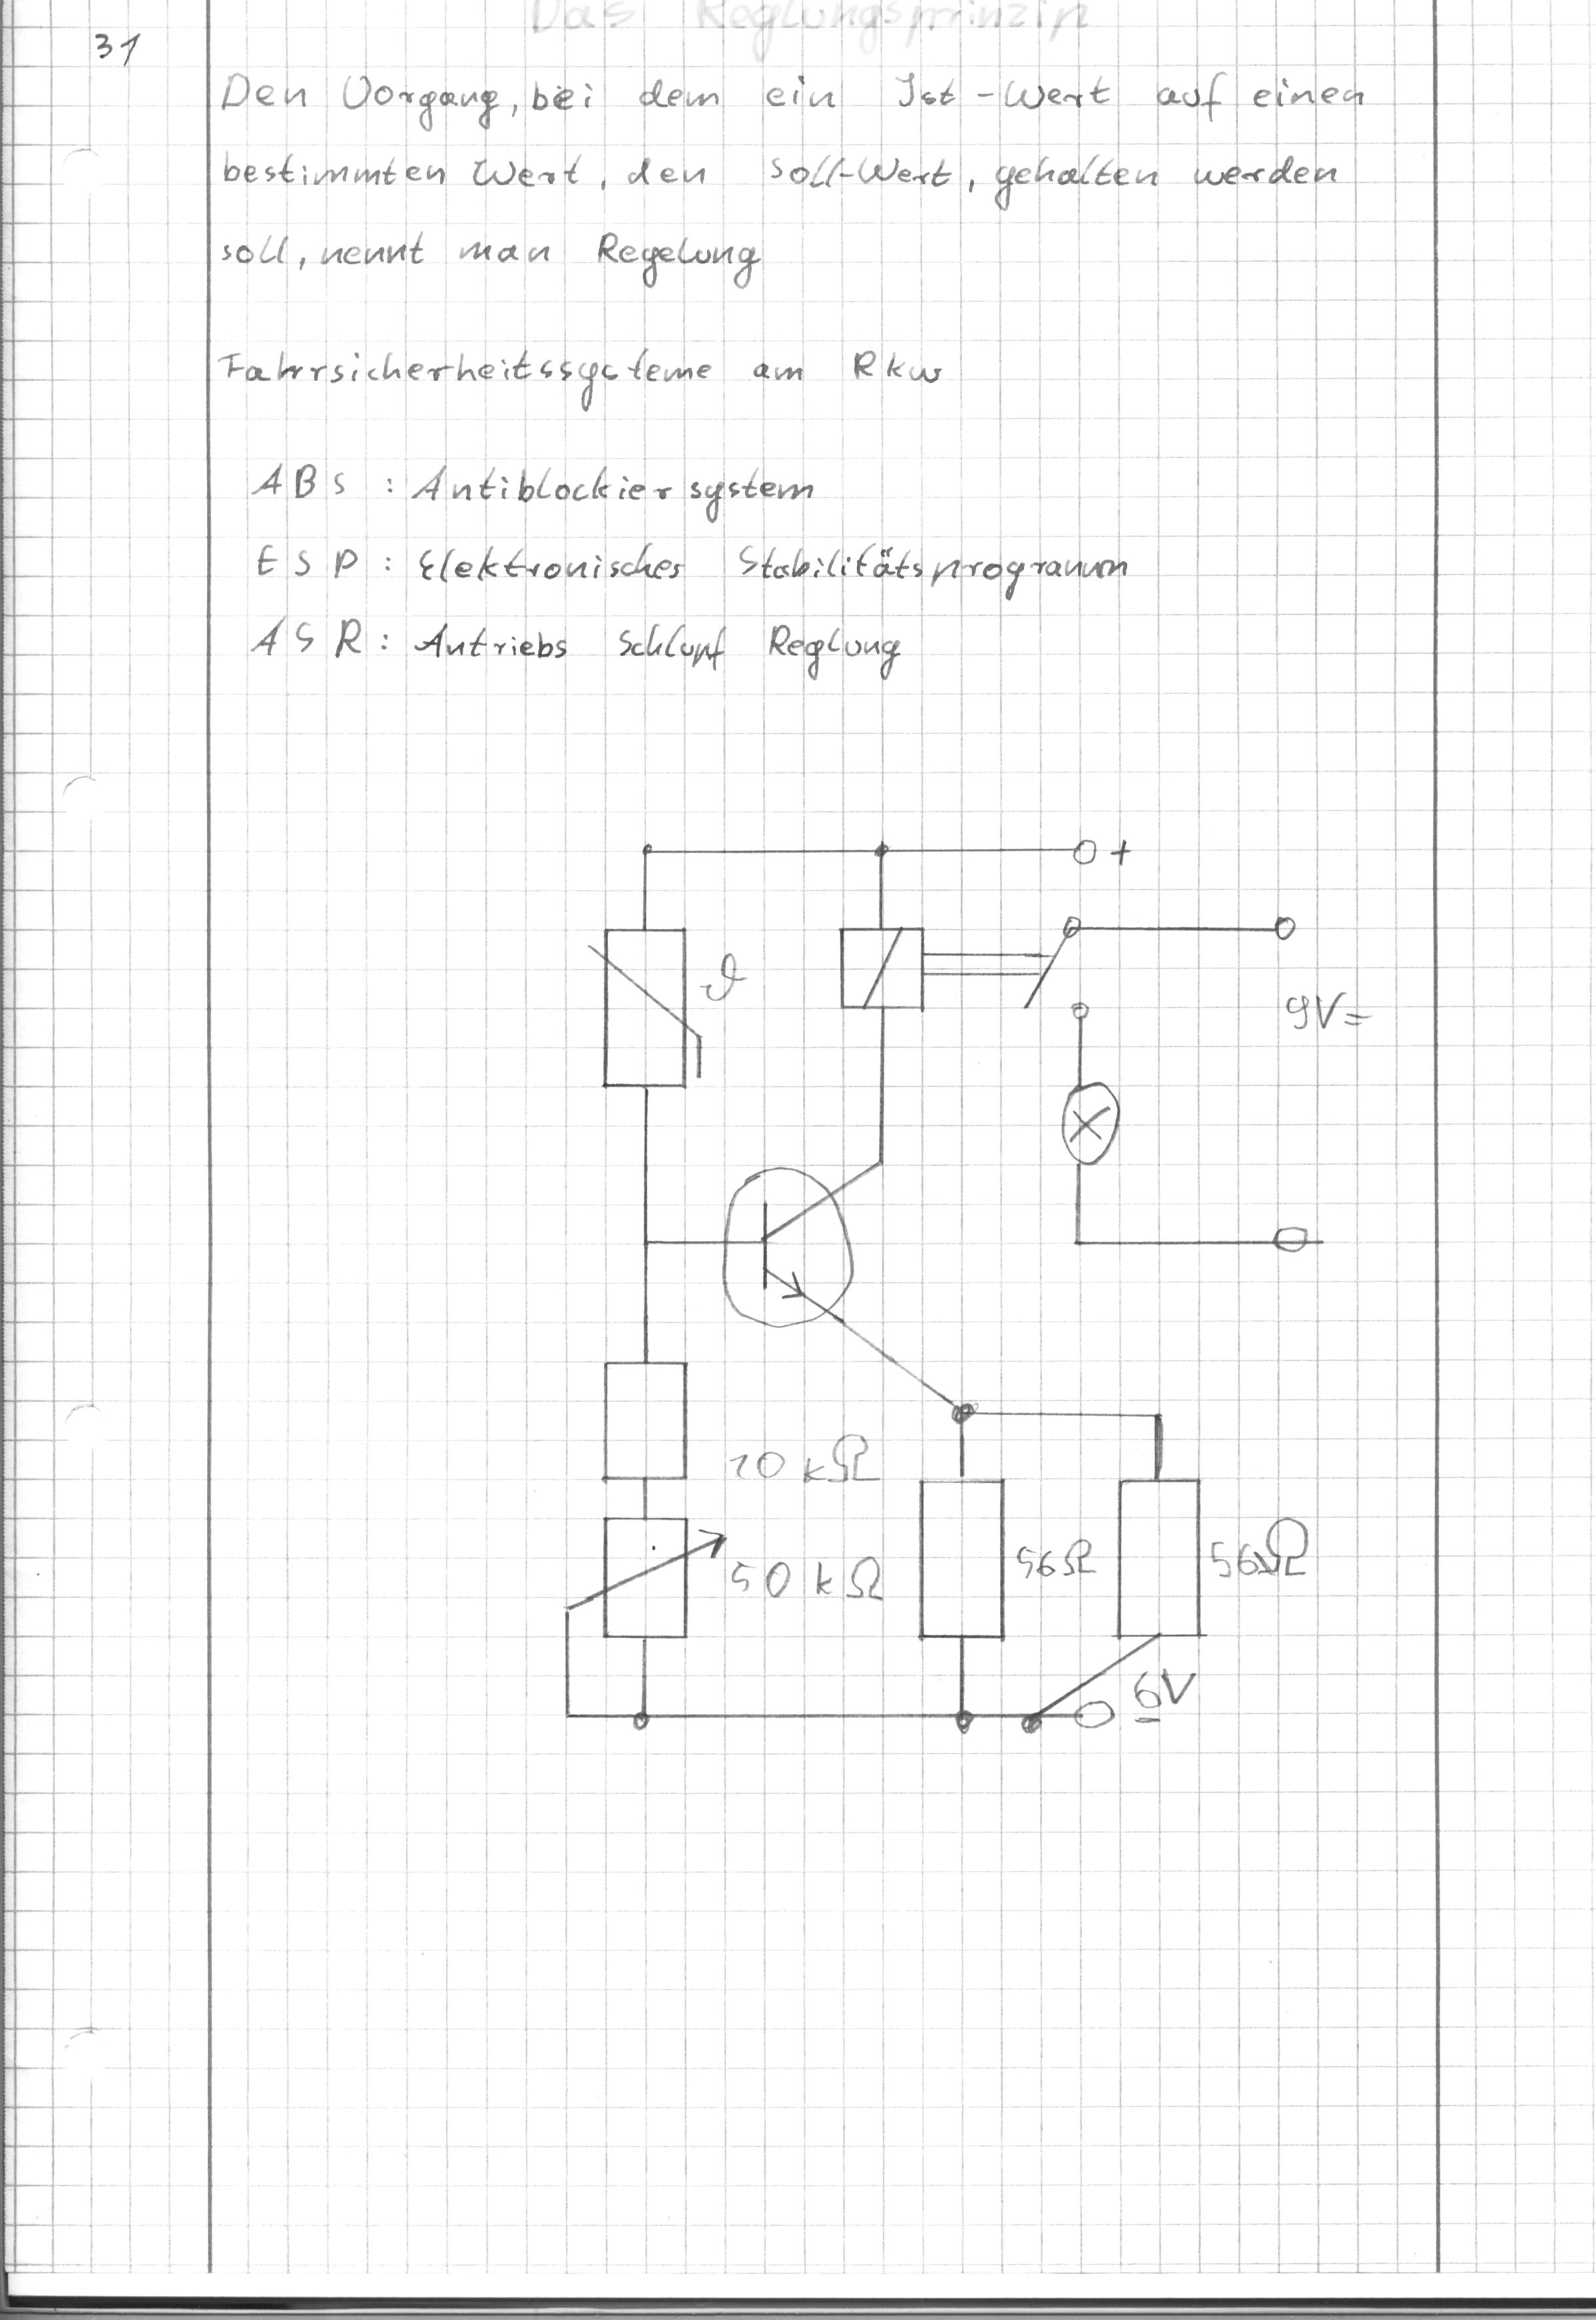 Das Reglungsprinzip
31
Den Vorgang, bei dem ein Ist-Wert auf einen
bestimmten Wert, den Soll-Wert, gehalten werden
soll, nennt man Regelung
Fahrsicherheitssysteme am Pkw
ABS : Antiblockiersystem
ESP : Elektronisches Stabilitätsprogramm
ASR : Antriebs Schlupf Reglung
+
ϑ
9V=
10 kΩ
50 kΩ
56Ω
56Ω
6V